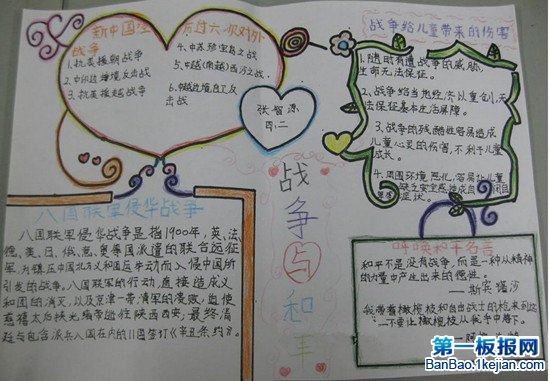 新中国经历过六次对外
战争
1、抗美援朝战争
2、中印边境反击战
3、抗美援越战争
4、中苏珍宝岛之战
5、中越(南越)西沙之战
6、中越边境自卫反击战
张智源
四二
战争给儿童带来的伤害
1、随时有遭战争的威胁,
生命无法保证。
2、战争给当地经济以重创,无
法保证基本生活屏障。
3、战争的残酷性容易造成
儿童心灵的伤害,不利于儿童
成长。
4、周围环境恶化,容易让儿童
缺乏安全感造成自闭
症状。
战争与和平
八国联军侵华战争
八国联军侵华战争是指1900年,英、法、
德、美、日、俄、意、奥等国派遣的联合远征
军,为镇压中国北方义和团运动而入侵中国所
引发的战争。八国联军的行动,直接造成义
和团的消灭,以及京津一带清军的溃败,迫使
慈禧太后挟光绪帝逃往陕西西安,最终清
廷与包含派兵八国在内的11国签订《辛丑条约》。
呼唤和平名言
和平不是没有战争,而是一种从精神
的力量中产生出来的德性。
——斯宾诺沙
我带着橄榄枝和自由战士的枪来到这
不要让橄榄枝从我手中落下。
第一板报网
BanBao.1kejian.com